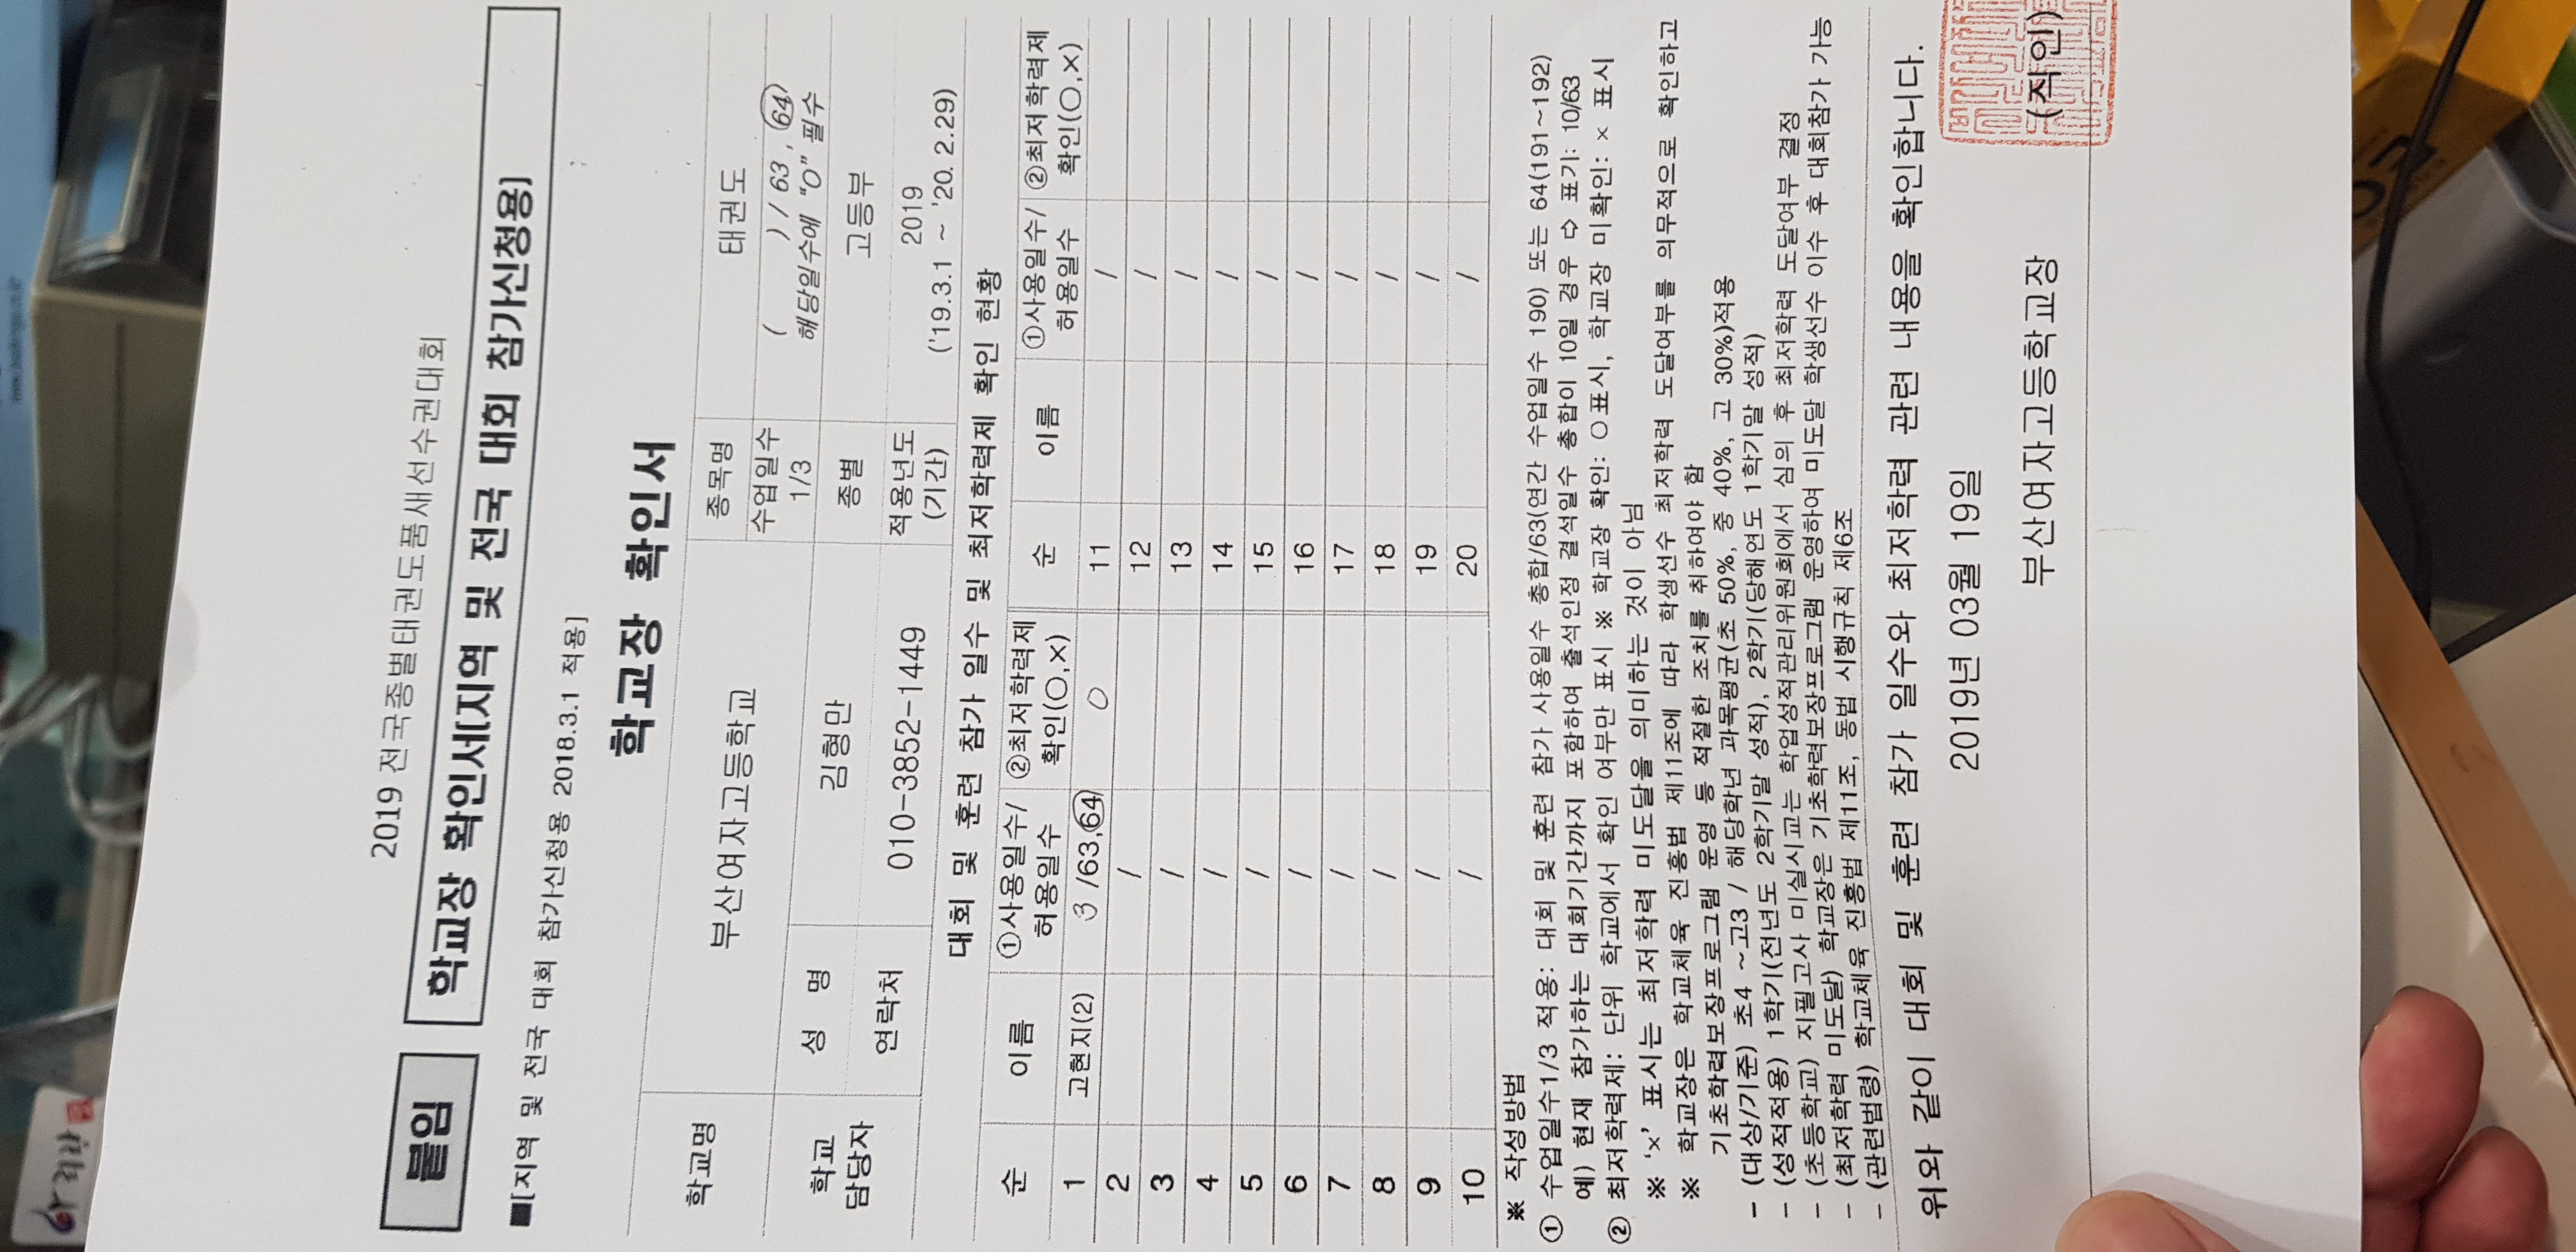 2019 전국종별태권도품새선수권대회
붙임 학교장 확인서[지역 및 전국 대회 참가신청용]
■[지역 및 전국 대회 참가신청용 2018.3.1 적용]
학교장 확인서
학교명 부산여자고등학교 종목명 태권도
수업일수 1/3 ( ) / 63 , 64) 해당일수에 "O" 필수
학교 담당자 성 명 김형만 종별 고등부
연락처 010-3852-1449 적용년도 (기간) 2019 ('19.3.1 ~ '20. 2.29)
대회 및 훈련 참가 일수 및 최저학력제 확인 현황
순 이름 ①사용일수/ 허용일수 ②최저학력제 확인(○,×) 순 이름 ①사용일수/ 허용일수 ②최저학력제 확인(○,×)
1 고현지(2) 3 /63,64 O 11 /
2 / 12 /
3 / 13 /
4 / 14 /
5 / 15 /
6 / 16 /
7 / 17 /
8 / 18 /
9 / 19 /
10 / 20 /
※ 작성방법
① 수업일수1/3 적용: 대회 및 훈련 참가 사용일수 총합/63(연간 수업일수 190) 또는 64(191~192)
예) 현재 참가하는 대회기간까지 포함하여 출석인정 결석일수 총합이 10일 경우 ⇨ 표기: 10/63
② 최저학력제: 단위 학교에서 확인 여부만 표시 ※ 학교장 확인: ○표시, 학교장 미확인: × 표시
※ '×' 표시는 최저학력 미도달을 의미하는 것이 아님
※ 학교장은 학교체육 진흥법 제11조에 따라 학생선수 최저학력 도달여부를 의무적으로 확인하고
기초학력보장프로그램 운영 등 적절한 조치를 취하여야 함
- (대상/기준) 초4 ~고3 / 해당학년 과목평균(초 50%, 중 40%, 고 30%)적용
- (성적적용) 1학기(전년도 2학기말 성적), 2학기(당해연도 1학기말 성적)
- (초등학교) 지필고사 미실시교는 학업성적관리위원회에서 심의 후 최저학력 도달여부 결정
- (최저학력 미도달) 학교장은 기초학력보장프로그램 운영하여 미도달 학생선수 이수 후 대회참가 가능
- (관련법령) 학교체육 진흥법 제11조, 동법 시행규칙 제6조
위와 같이 대회 및 훈련 참가 일수와 최저학력 관련 내용을 확인합니다.
2019년 03월 19일
부산여자고등학교장 (직인)